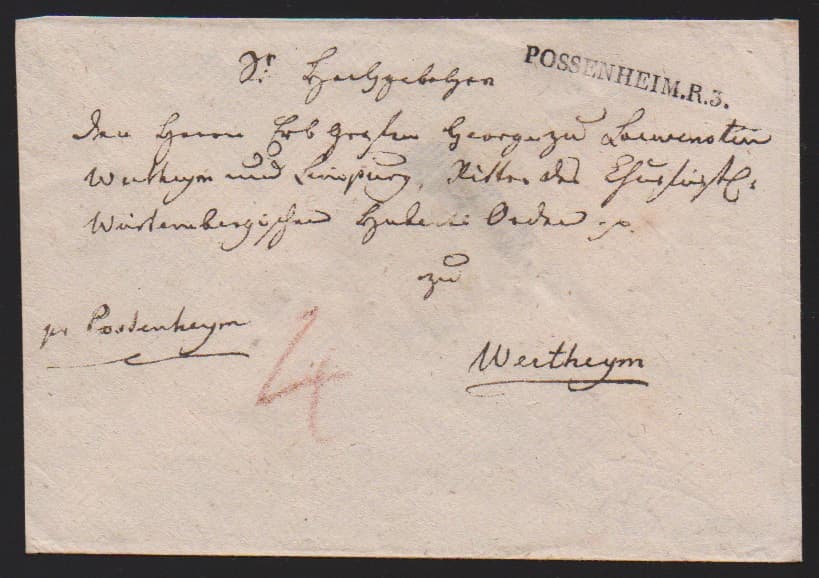 POSSENHEIM.R.3.
Sr Hochgebohren
Dem Herrn Erb Grafen George zu Loewenstein
Wertheym und Limpurg, Ritter des Churfürstl:
Würtembergischen Huberti Orden p.
zu
pr Possenheym
4
Wertheym